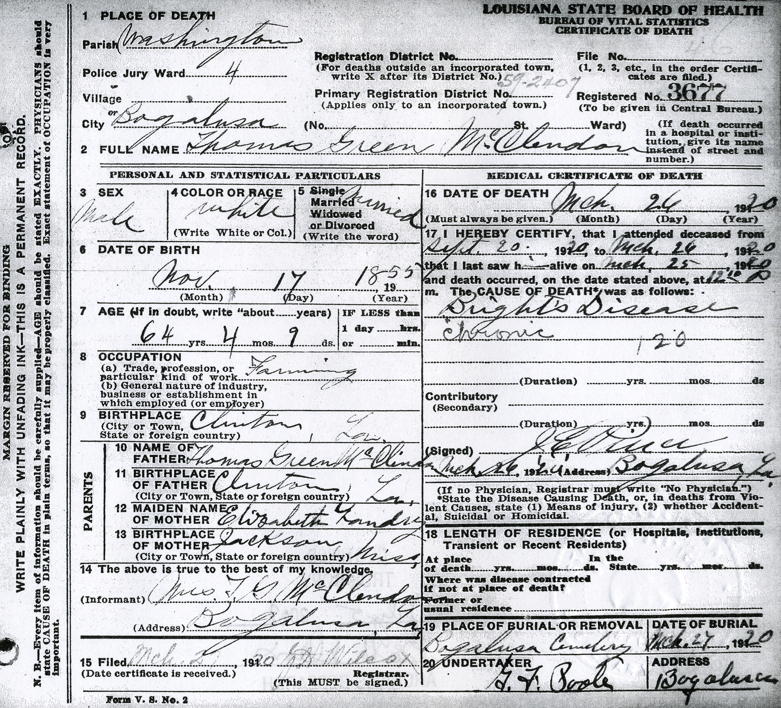 LOUISIANA STATE BOARD OF HEALTH
BUREAU OF VITAL STATISTICS
CERTIFICATE OF DEATH
MARGIN RESERVED FOR BINDING
WRITE PLAINLY WITH UNFADING INK—THIS IS A PERMANENT RECORD.
N. B.—Every item of information should be carefully supplied—AGE should be stated EXACTLY. PHYSICIANS should
state CAUSE OF DEATH in plain terms, so that it may be properly classified. Exact statement of OCCUPATION is very
important.
1 PLACE OF DEATH
Parish Washington
Police Jury Ward 4
Village
or
City Bogalusa
Registration District No.
(For deaths outside an incorporated town,
write X after its District No.)
59-2407
Primary Registration District No.
(Applies only to an incorporated town.)
(No. St. Ward)
File No.
(1, 2, 3, etc., in the order Certifi-
cates are filed.)
Registered No. 3677
(To be given in Central Bureau.)
(If death occurred
in a hospital or insti-
tution, give its name
instead of street and
number.)
2 FULL NAME Thomas Green McClendon
PERSONAL AND STATISTICAL PARTICULARS
3 SEX
Male
4 COLOR OR RACE
white
(Write White or Col.)
5 Single
Married
Widowed
or Divorced
(Write the word)
Married
6 DATE OF BIRTH
Nov. 17 1855
19
(Month) (Day) (Year)
7 AGE (If in doubt, write "about......years)
64 yrs. 4 mos. 9 ds.
IF LESS than
1 day hrs.
or min.
8 OCCUPATION
(a) Trade, profession, or
particular kind of work Farming
(b) General nature of industry,
business or establishment in
which employed (or employer)
9 BIRTHPLACE
(City or Town,
State or foreign country)
Clinton, La.
PARENTS
10 NAME OF
FATHER Thomas Green McClendon
11 BIRTHPLACE
OF FATHER Clinton, La.
(City or Town, State or foreign country)
12 MAIDEN NAME
OF MOTHER Elizabeth Landry
13 BIRTHPLACE
OF MOTHER Jackson, Miss
(City or Town, State or foreign country)
14 The above is true to the best of my knowledge.
(Informant) Mrs. T. G. McClendon
(Address) Bogalusa, La
15 Filed Mch. 1920 Wilcox
(Date certificate is received.) Registrar.
(This MUST be signed.)
Form V. S. No. 2
MEDICAL CERTIFICATE OF DEATH
16 DATE OF DEATH Mch. 26 1920
(Must always be given.) (Month) (Day) (Year)
17 I HEREBY CERTIFY, that I attended deceased from
Sept. 20 1920, to Mch. 26 1920
that I last saw h alive on Mch. 25 1920
and death occurred, on the date stated above, at 12
m. The CAUSE OF DEATH* was as follows:
Bright's Disease
Chronic 120
(Duration) yrs. mos. ds
Contributory
(Secondary)
(Duration) yrs. mos. ds.
(Signed)
Mch 26, 1920 (Address) Bogalusa La
(If no Physician, Registrar must write "No Physician.")
*State the Disease Causing Death, or, in deaths from Vio-
lent Causes, state (1) Means of injury, (2) whether Accident-
al, Suicidal or Homicidal.
18 LENGTH OF RESIDENCE (or Hospitals, Institutions,
Transient or Recent Residents)
At place In the
of death yrs. mos. ds. State yrs. mos. ds.
Where was disease contracted
if not at place of death?
Former or
usual residence
19 PLACE OF BURIAL OR REMOVAL
Bogalusa Cemetery
DATE OF BURIAL
Mch. 27 1920
20 UNDERTAKER
G. F. Poole
ADDRESS
Bogalusa